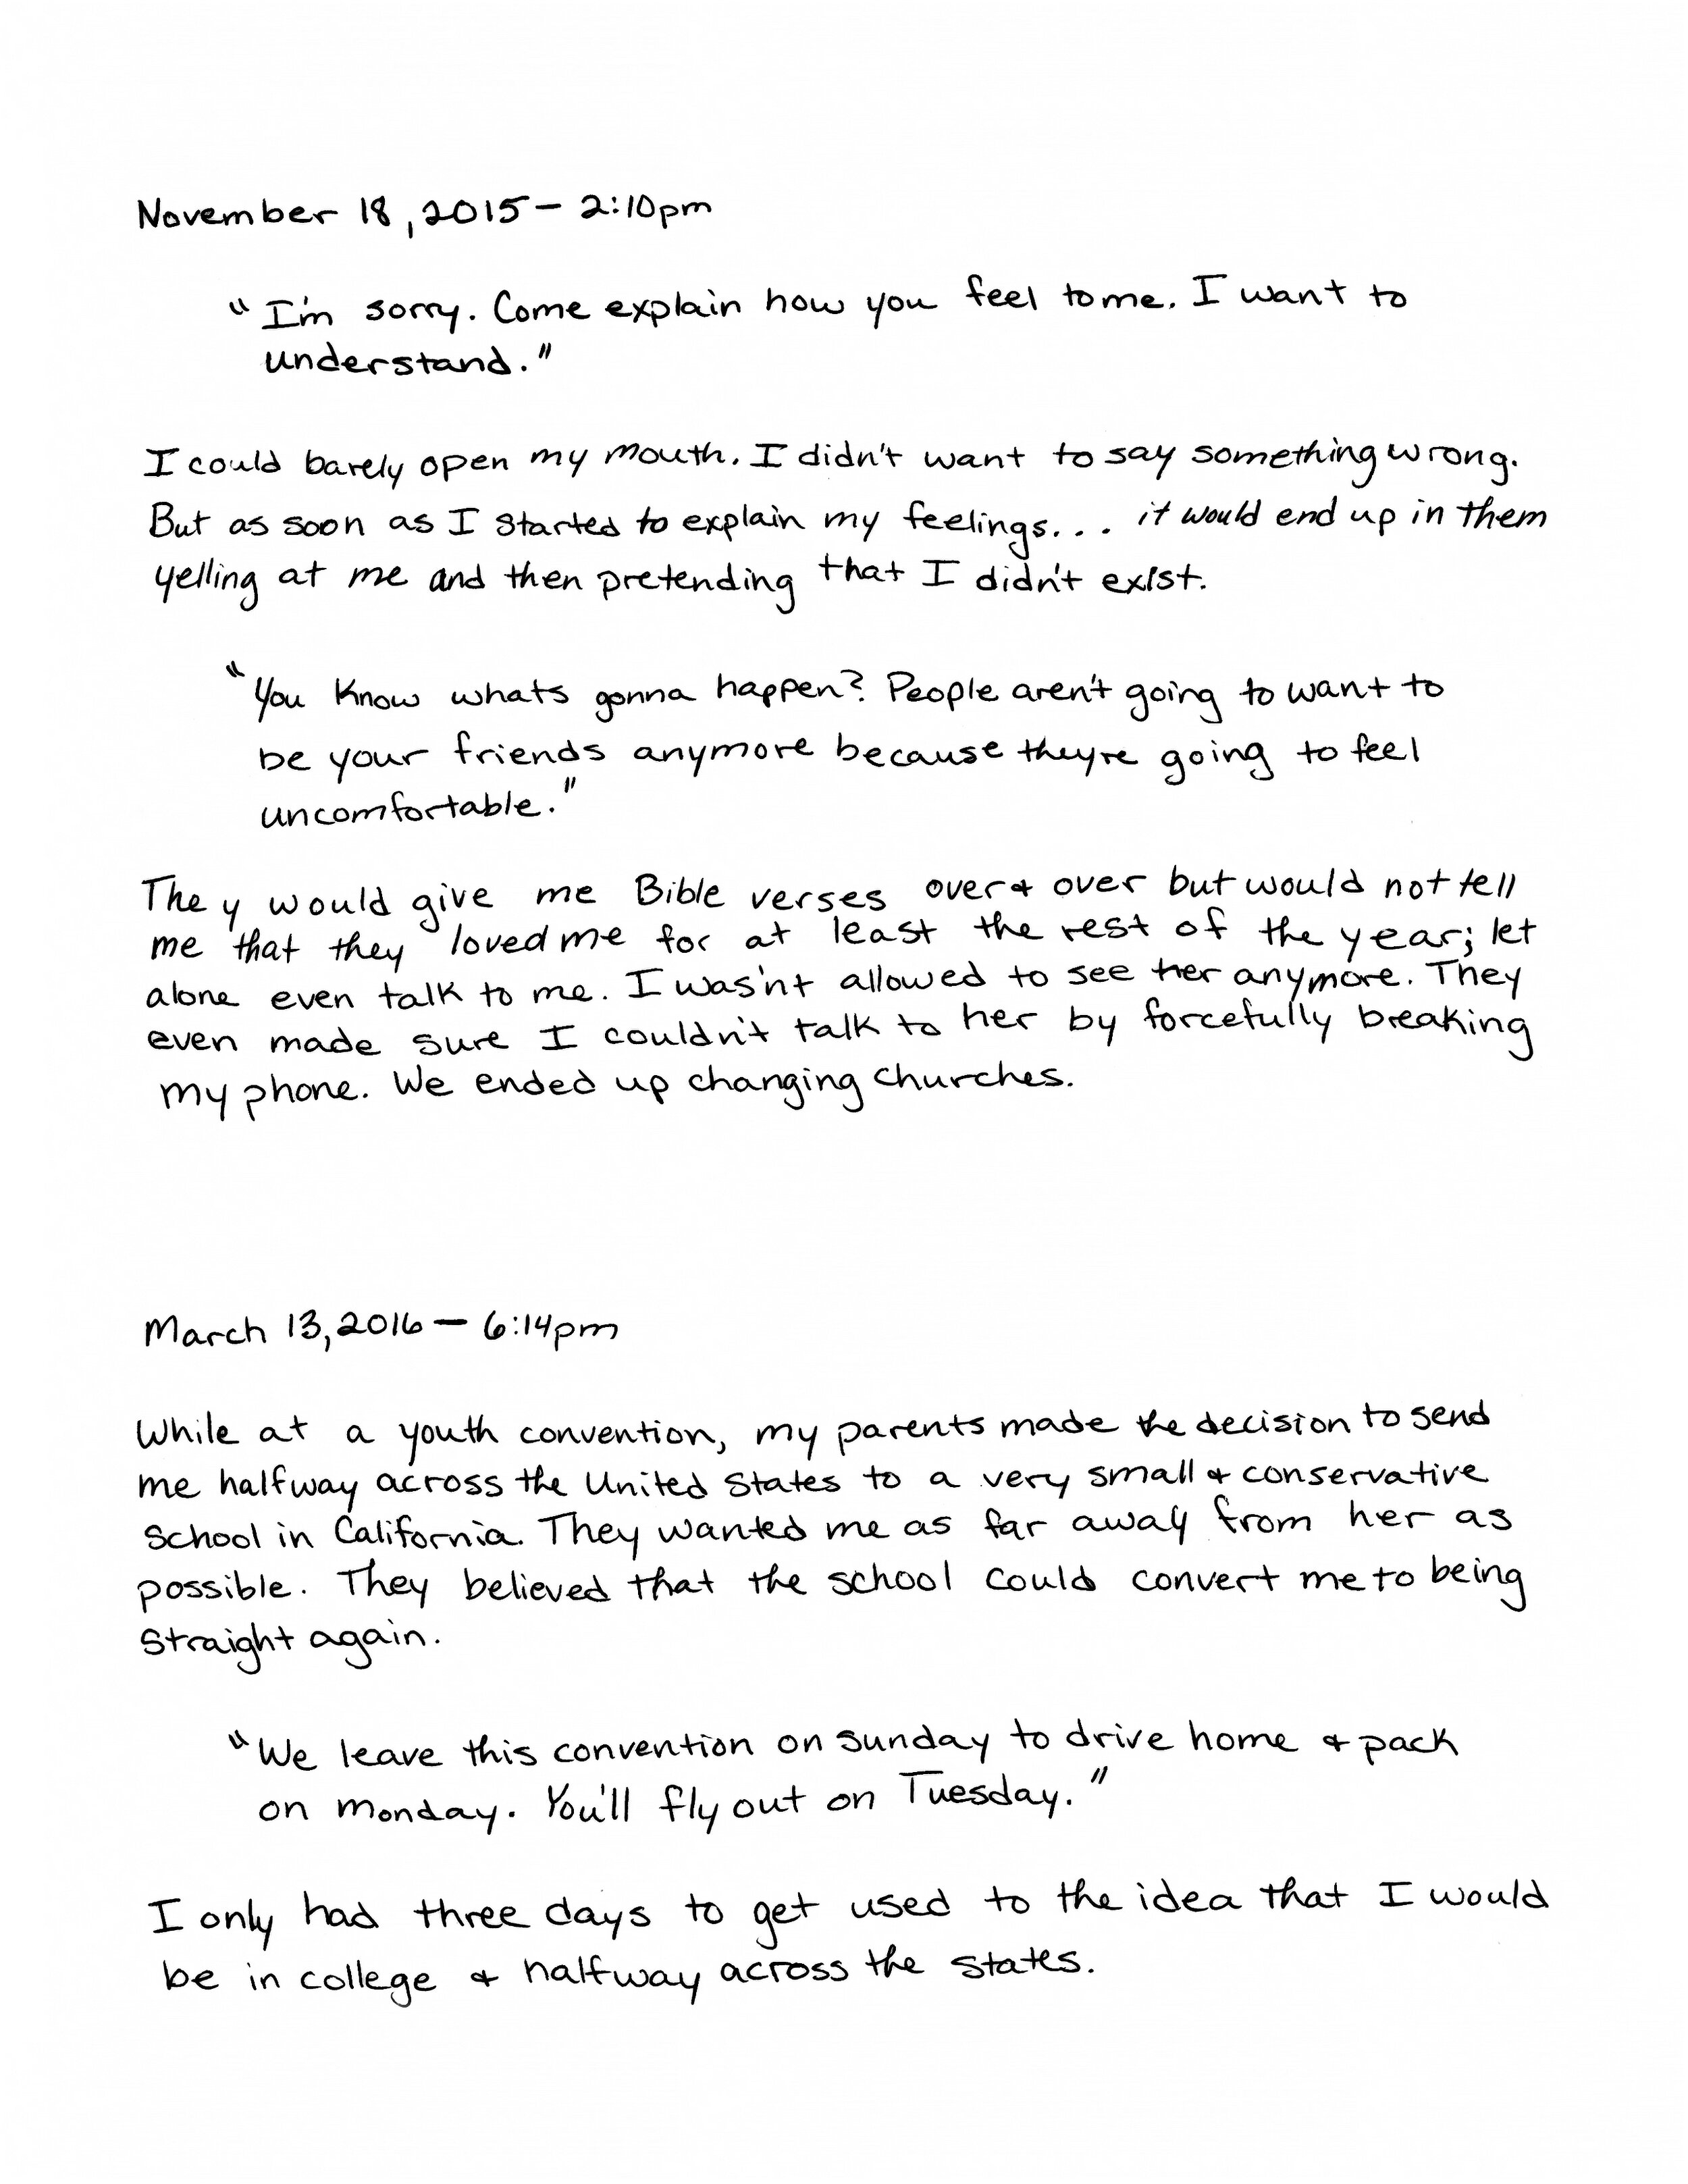 November 18, 2015 – 2:10pm
"I'm sorry. Come explain how you feel to me. I want to
understand."
I could barely open my mouth. I didn't want to say something wrong.
But as soon as I started to explain my feelings... it would end up in them
yelling at me and then pretending that I didn't exist.
"You know whats gonna happen? People aren't going to want to
be your friends anymore because they're going to feel
uncomfortable."
They would give me Bible verses over & over but would not tell
me that they loved me for at least the rest of the year; let
alone even talk to me. I was'nt allowed to see her anymore. They
even made sure I couldn't talk to her by forcefully breaking
my phone. We ended up changing churches.
March 13, 2016 – 6:14pm
While at a youth convention, my parents made the decision to send
me halfway across the United States to a very small & conservative
school in California. They wanted me as far away from her as
possible. They believed that the school could convert me to being
straight again.
"We leave this convention on Sunday to drive home & pack
on Monday. You'll fly out on Tuesday."
I only had three days to get used to the idea that I would
be in college & halfway across the states.